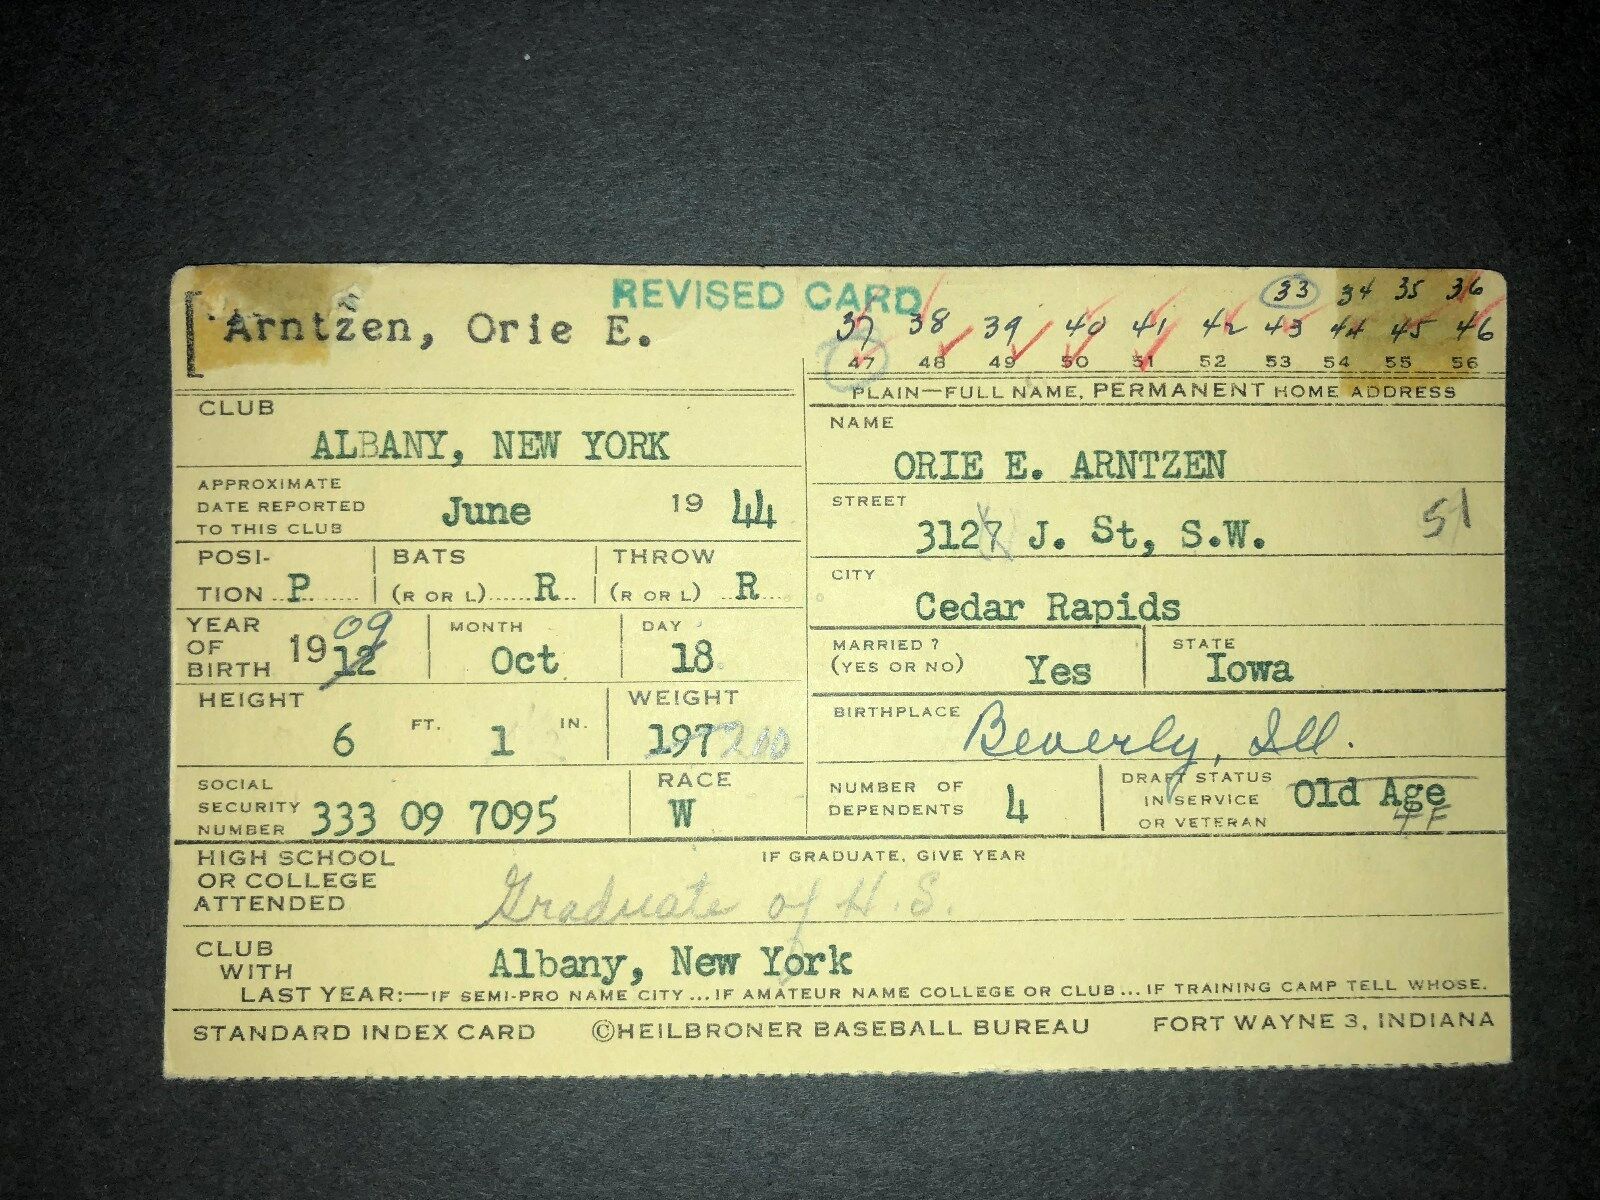 REVISED CARD
33 34 35 36
Arntzen, Orie E.
37 38 39 40 41 42 43 44 45 46
47 48 49 50 51 52 53 54 55 56
PLAIN—FULL NAME, PERMANENT HOME ADDRESS
CLUB
ALBANY, NEW YORK
NAME
ORIE E. ARNTZEN
APPROXIMATE
DATE REPORTED
TO THIS CLUB
June 19 44
STREET
3127 J. St, S.W.
51
POSI-
TION P
BATS
(R OR L) R
THROW
(R OR L) R
CITY
Cedar Rapids
YEAR
OF
BIRTH 19 12 09
MONTH
Oct
DAY
18
MARRIED?
(YES OR NO) Yes
STATE
Iowa
HEIGHT
6 FT. 1 IN.
WEIGHT
197 210
BIRTHPLACE Beverly, Ill.
SOCIAL
SECURITY
NUMBER 333 09 7095
RACE
W
NUMBER OF
DEPENDENTS 4
DRAFT STATUS
IN SERVICE
OR VETERAN
Old Age
4F
HIGH SCHOOL
OR COLLEGE
ATTENDED
IF GRADUATE, GIVE YEAR
Graduate of H.S.
CLUB
WITH
LAST YEAR:—IF SEMI-PRO NAME CITY...IF AMATEUR NAME COLLEGE OR CLUB...IF TRAINING CAMP TELL WHOSE.
Albany, New York
STANDARD INDEX CARD ©HEILBRONER BASEBALL BUREAU FORT WAYNE 3, INDIANA